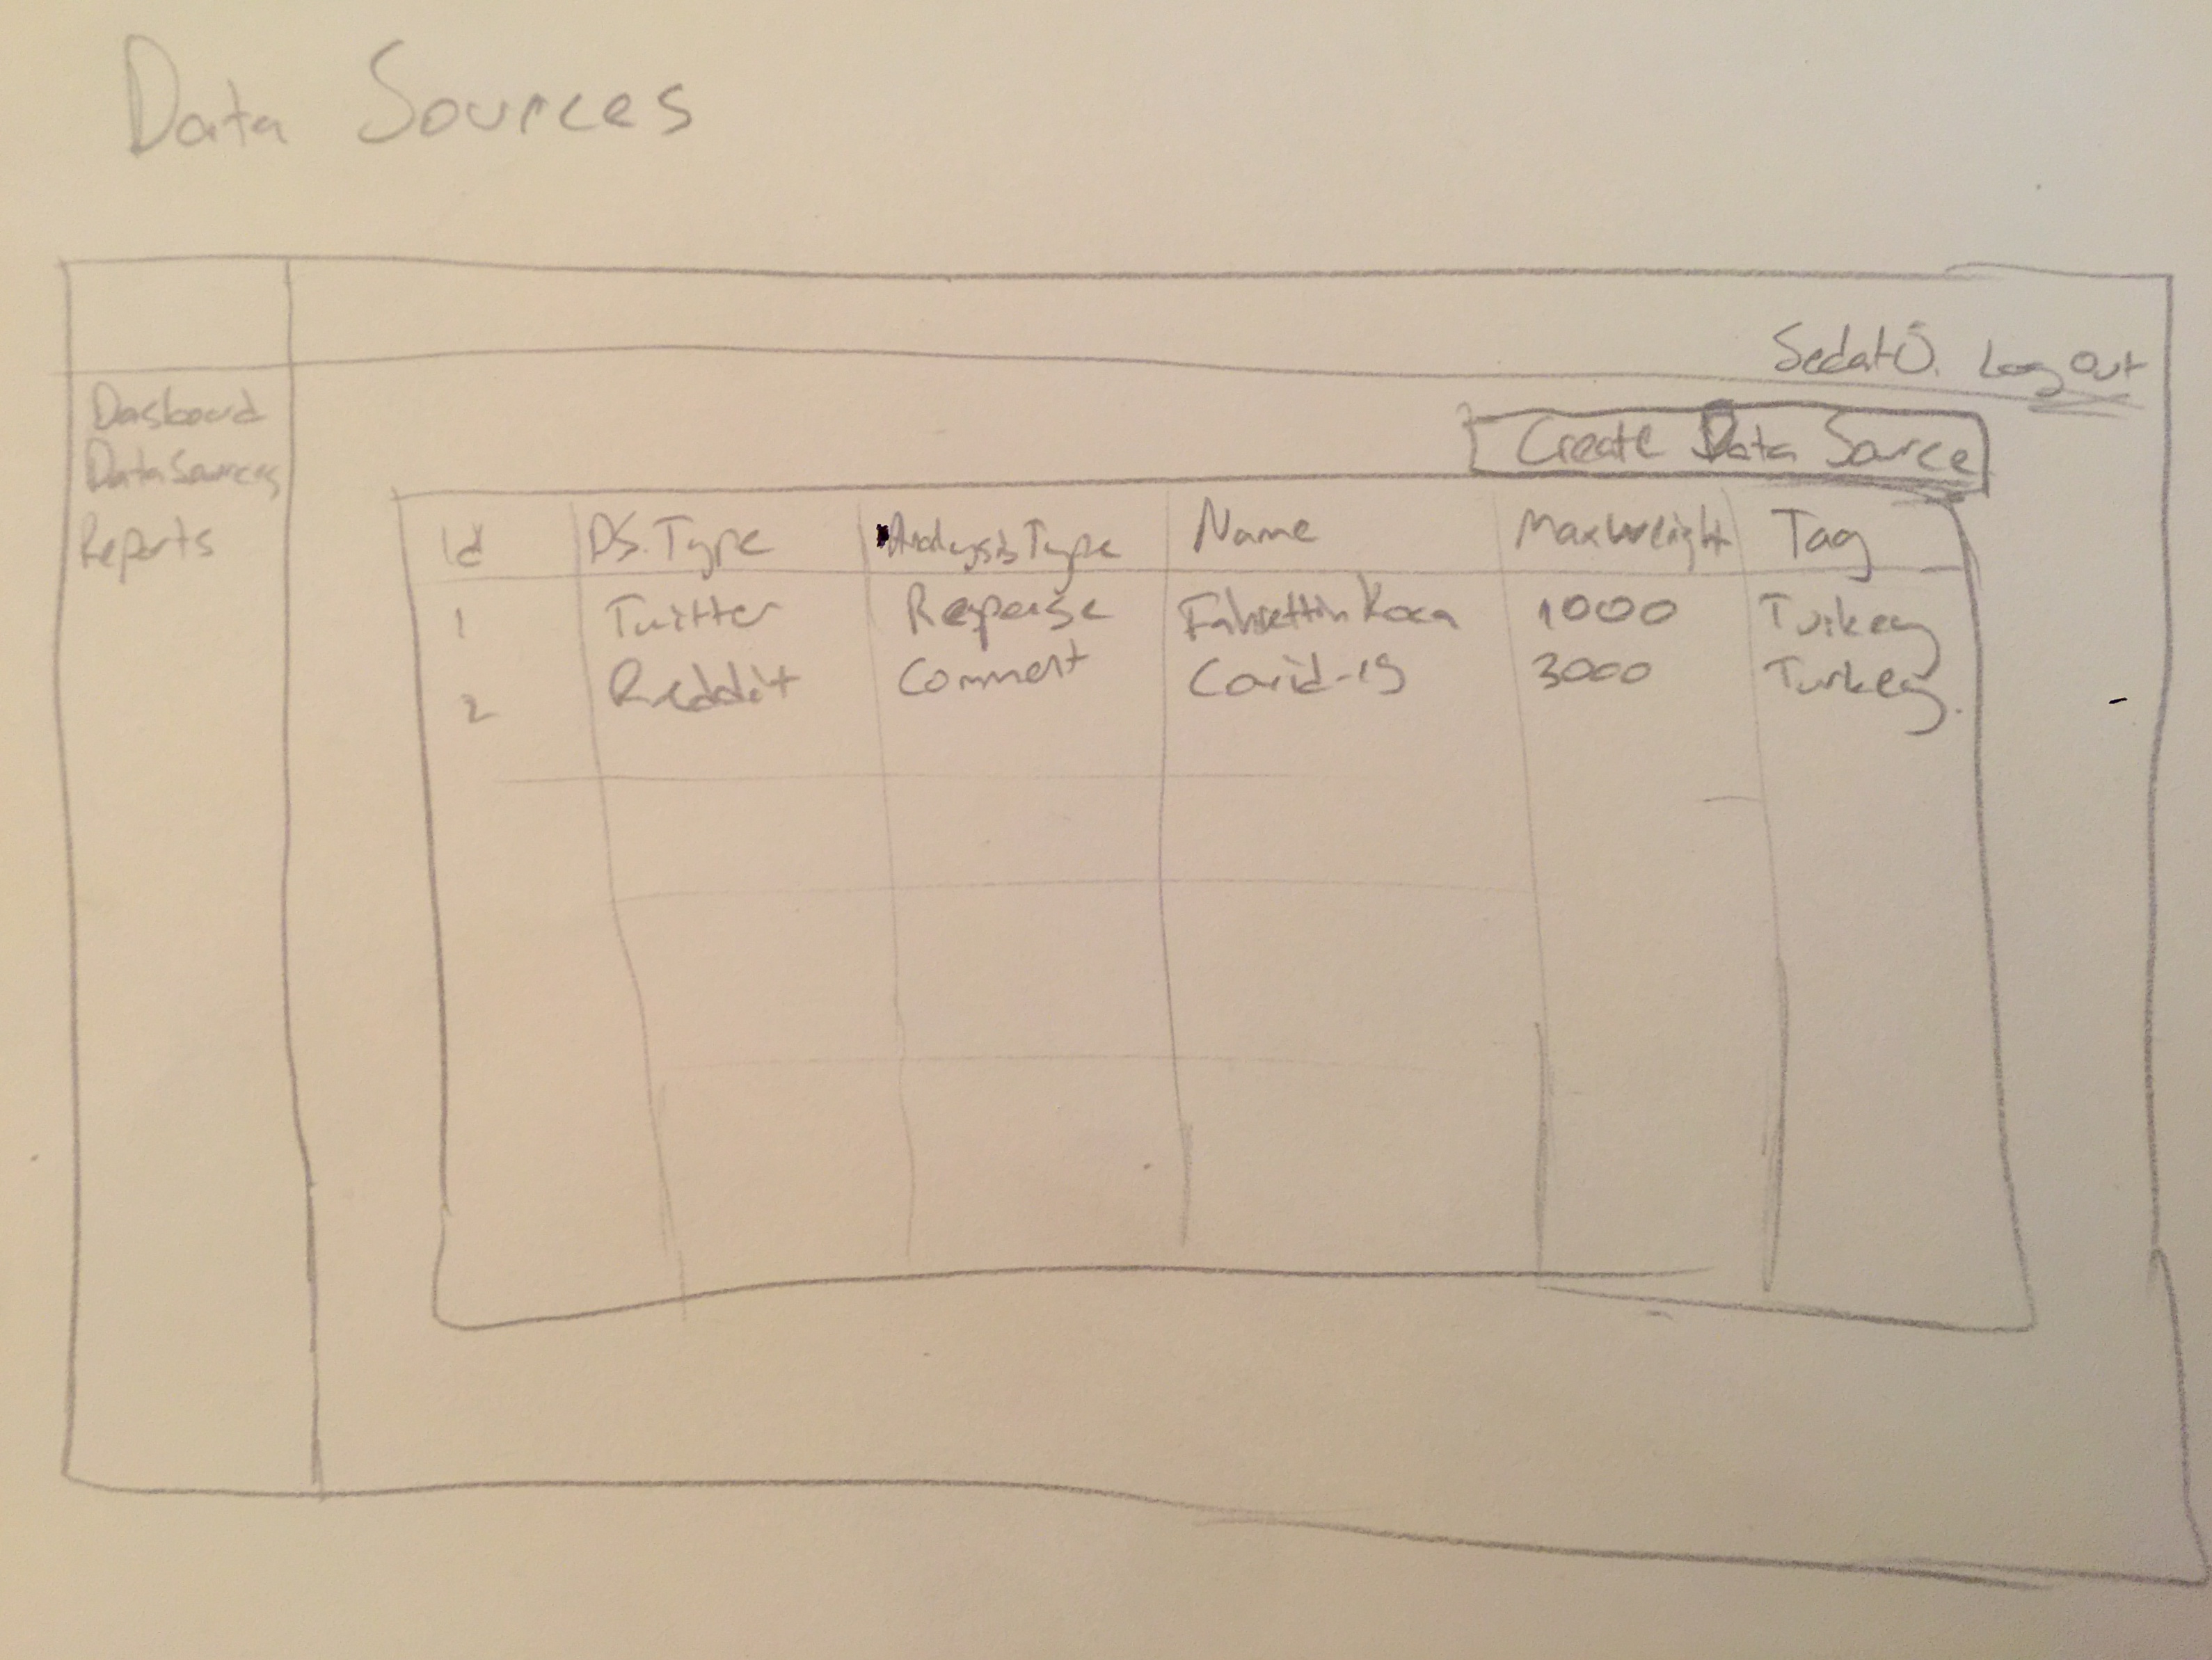 Data Sources
Sedat Ö. Log Out
Dasboard
Data Sources
Reports
Create Data Source
Id DS.Type Analysis Type Name Max Weight Tag
1 Twitter Response Fahrettin Koca 1000 Turkey
2 Reddit Comment Covid-19 3000 Turkey